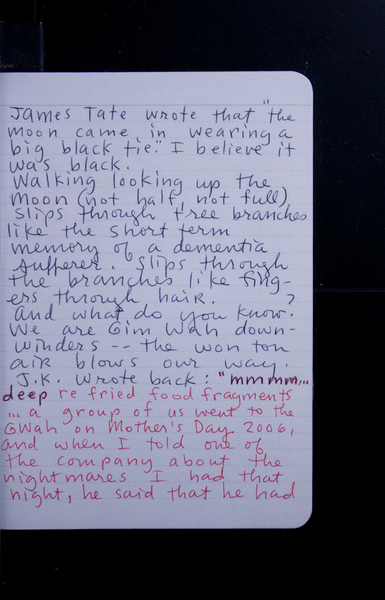 James Tate wrote that "the
moon came in wearing a
big black tie." I believe it
was black.
Walking looking up the
moon (not half, not full)
slips through tree branches
like the short term
memory of a dementia
sufferer. Slips through
the branches like fing-
ers through hair.
And what do you know?
We are Gim Wah down-
winders -- the won ton
air blows our way.
J.K. wrote back: "mmmm...
deep re fried food fragments
... a group of us went to the
GWah on Mother's Day 2006,
and when I told one of
the company about the
nightmares I had that
night, he said that he had